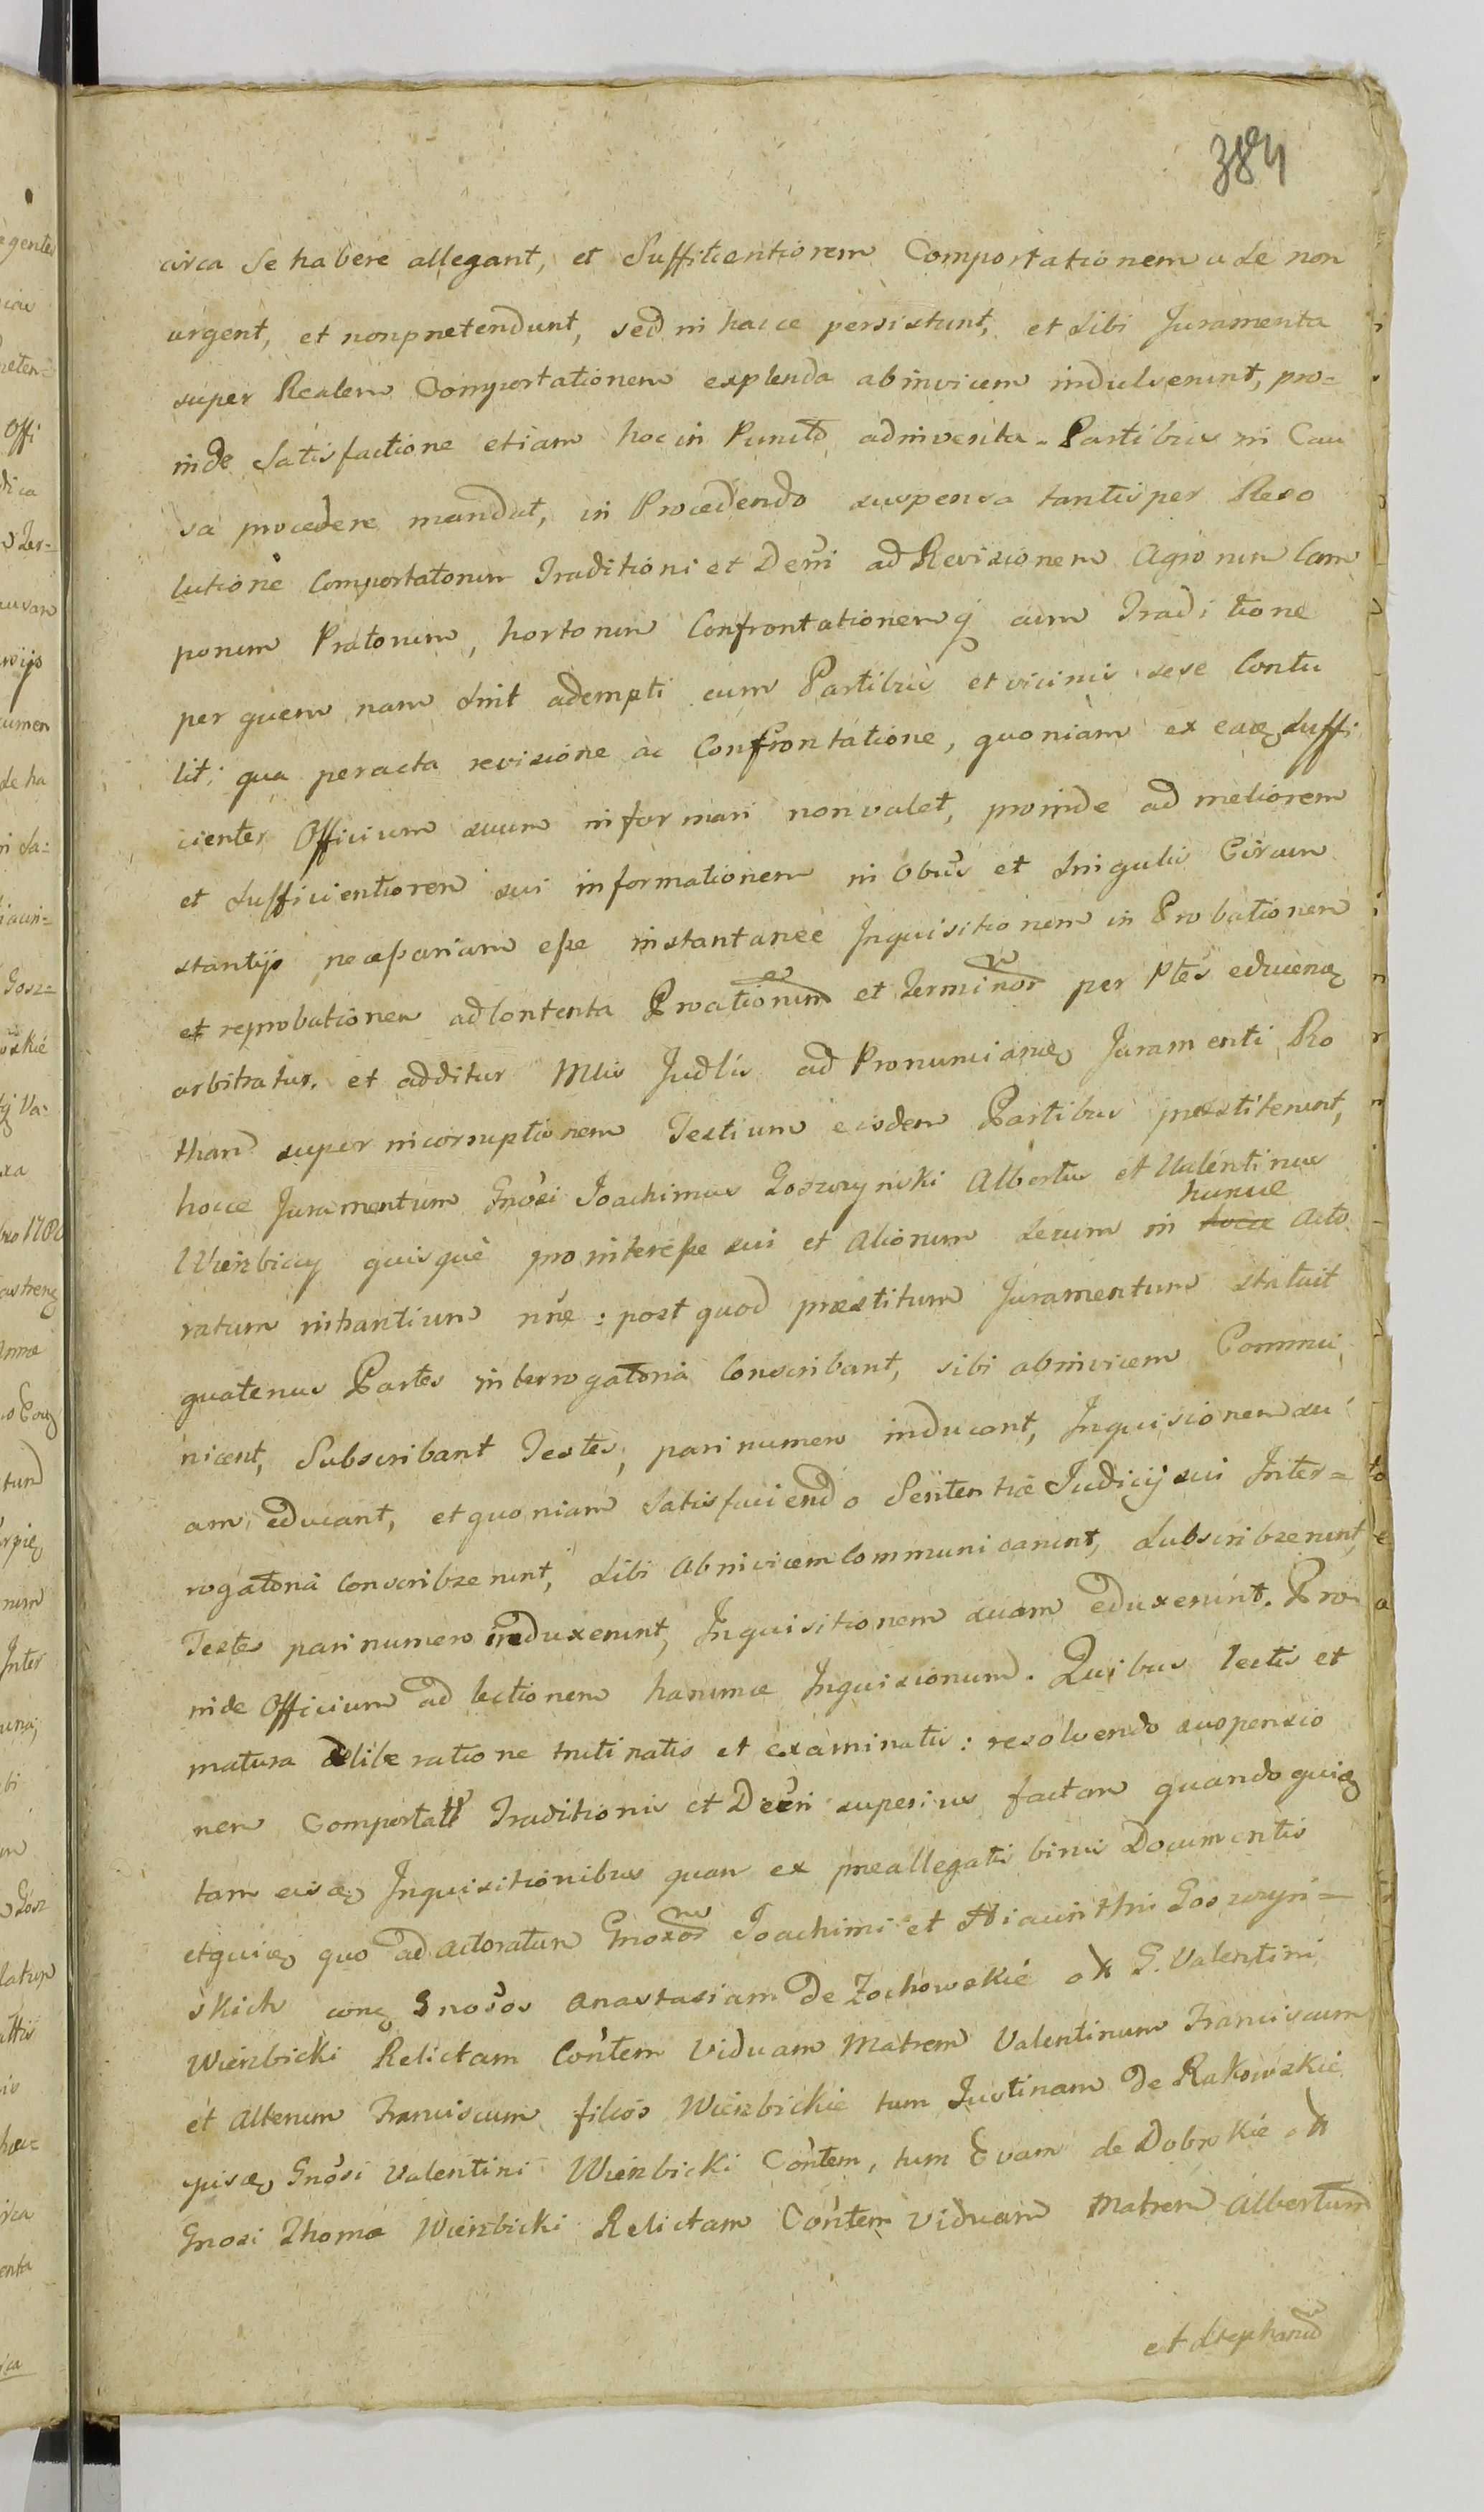 384
circa se habere allegant, et sufficientiorem Comportationem a se non
urgent, et non praetendunt, sed in hacce persistunt, et sibi Juramenta
super Realem Comportationem explenda abinvicem indulserunt, pro=
inde satisfactione etiam hoc in Puncto adinventa. Partibus in Cau
sa procedere mandat, in Procedendo suspensa tantisper Reso
lutione Comportatorum Traditioni et Decni ad Revisionem Agrorum Cam
porum Pratorum, hortorum Confrontationemq cum Traditione
per quem nam sint adempti cum Partibus et vicinis sese Contu
lit; qua peracta revisione ac Confrontatione, quoniam ex eaq suffi
cienter Officium suum informari non valet, proinde ad meliorem
et sufficientiorem sui informationem in obus et singulis Circum
stantijs necessariam esse instantanee Inquisitionem in Probationem
et reprobationem ad Contenta Proationum et Terminor per Ptes educenq
arbitratur. et additur Mlis Judlis ad Pronunciang Juramenti Ro
tham super incorruptionem Testium eisdem Partibus praestiterunt,
hocce Juramentum Gnosi Joachimus Goszczynski Albertus et Valentinus
Wierzbiccy quisque pro interesse sui et aliorum secum in hunce Acto
ratum intrantium nne: post quod praestitum Juramentum statuit
quatenus Partes interrogatoria Conscribant, sibi abinvicem Commu
nicent, Subscribant Testes, pari numero inducant, Inquisionem su
am educant, et quoniam satisfaciendo Sententiae Judicij sui Inter=
rogatoria Conscribserunt, sibi abinvicem Communicarunt, subscribserunt,
Testes pari numero induxerunt, Inquisitionem suam eduxerunt. Pro
inde Officium ad lectionem harumce Inquisionum. Quibus lectis et
matura deliberatione trutinatis et examinatis: resolvendo suspensio
nem Comportatt Traditionis et Decri superius factam quandoquiq
tam eisq Inquisitionibus quam ex praeallegatis binis Documentis
etquiq quo ad actoratum Gnoror Joachimi et Hiacinthi Goszczyn=
skich conq Gnosos Anastasiam de Zochowskie olt G. Valentini
Wierzbicki Relictam Contem Viduam Matrem Valentinum Franciscum
et Alterum Franciscum filios Wierzbickie tum Justinam de Rakowskie
ipisq Gnosi Valentini Wierzbicki Contem, tum Evam de Dobrskie olt
Gnosi Thoma Wierzbicki Relictam Contem Viduam Matrem Albertum
et Stephanum